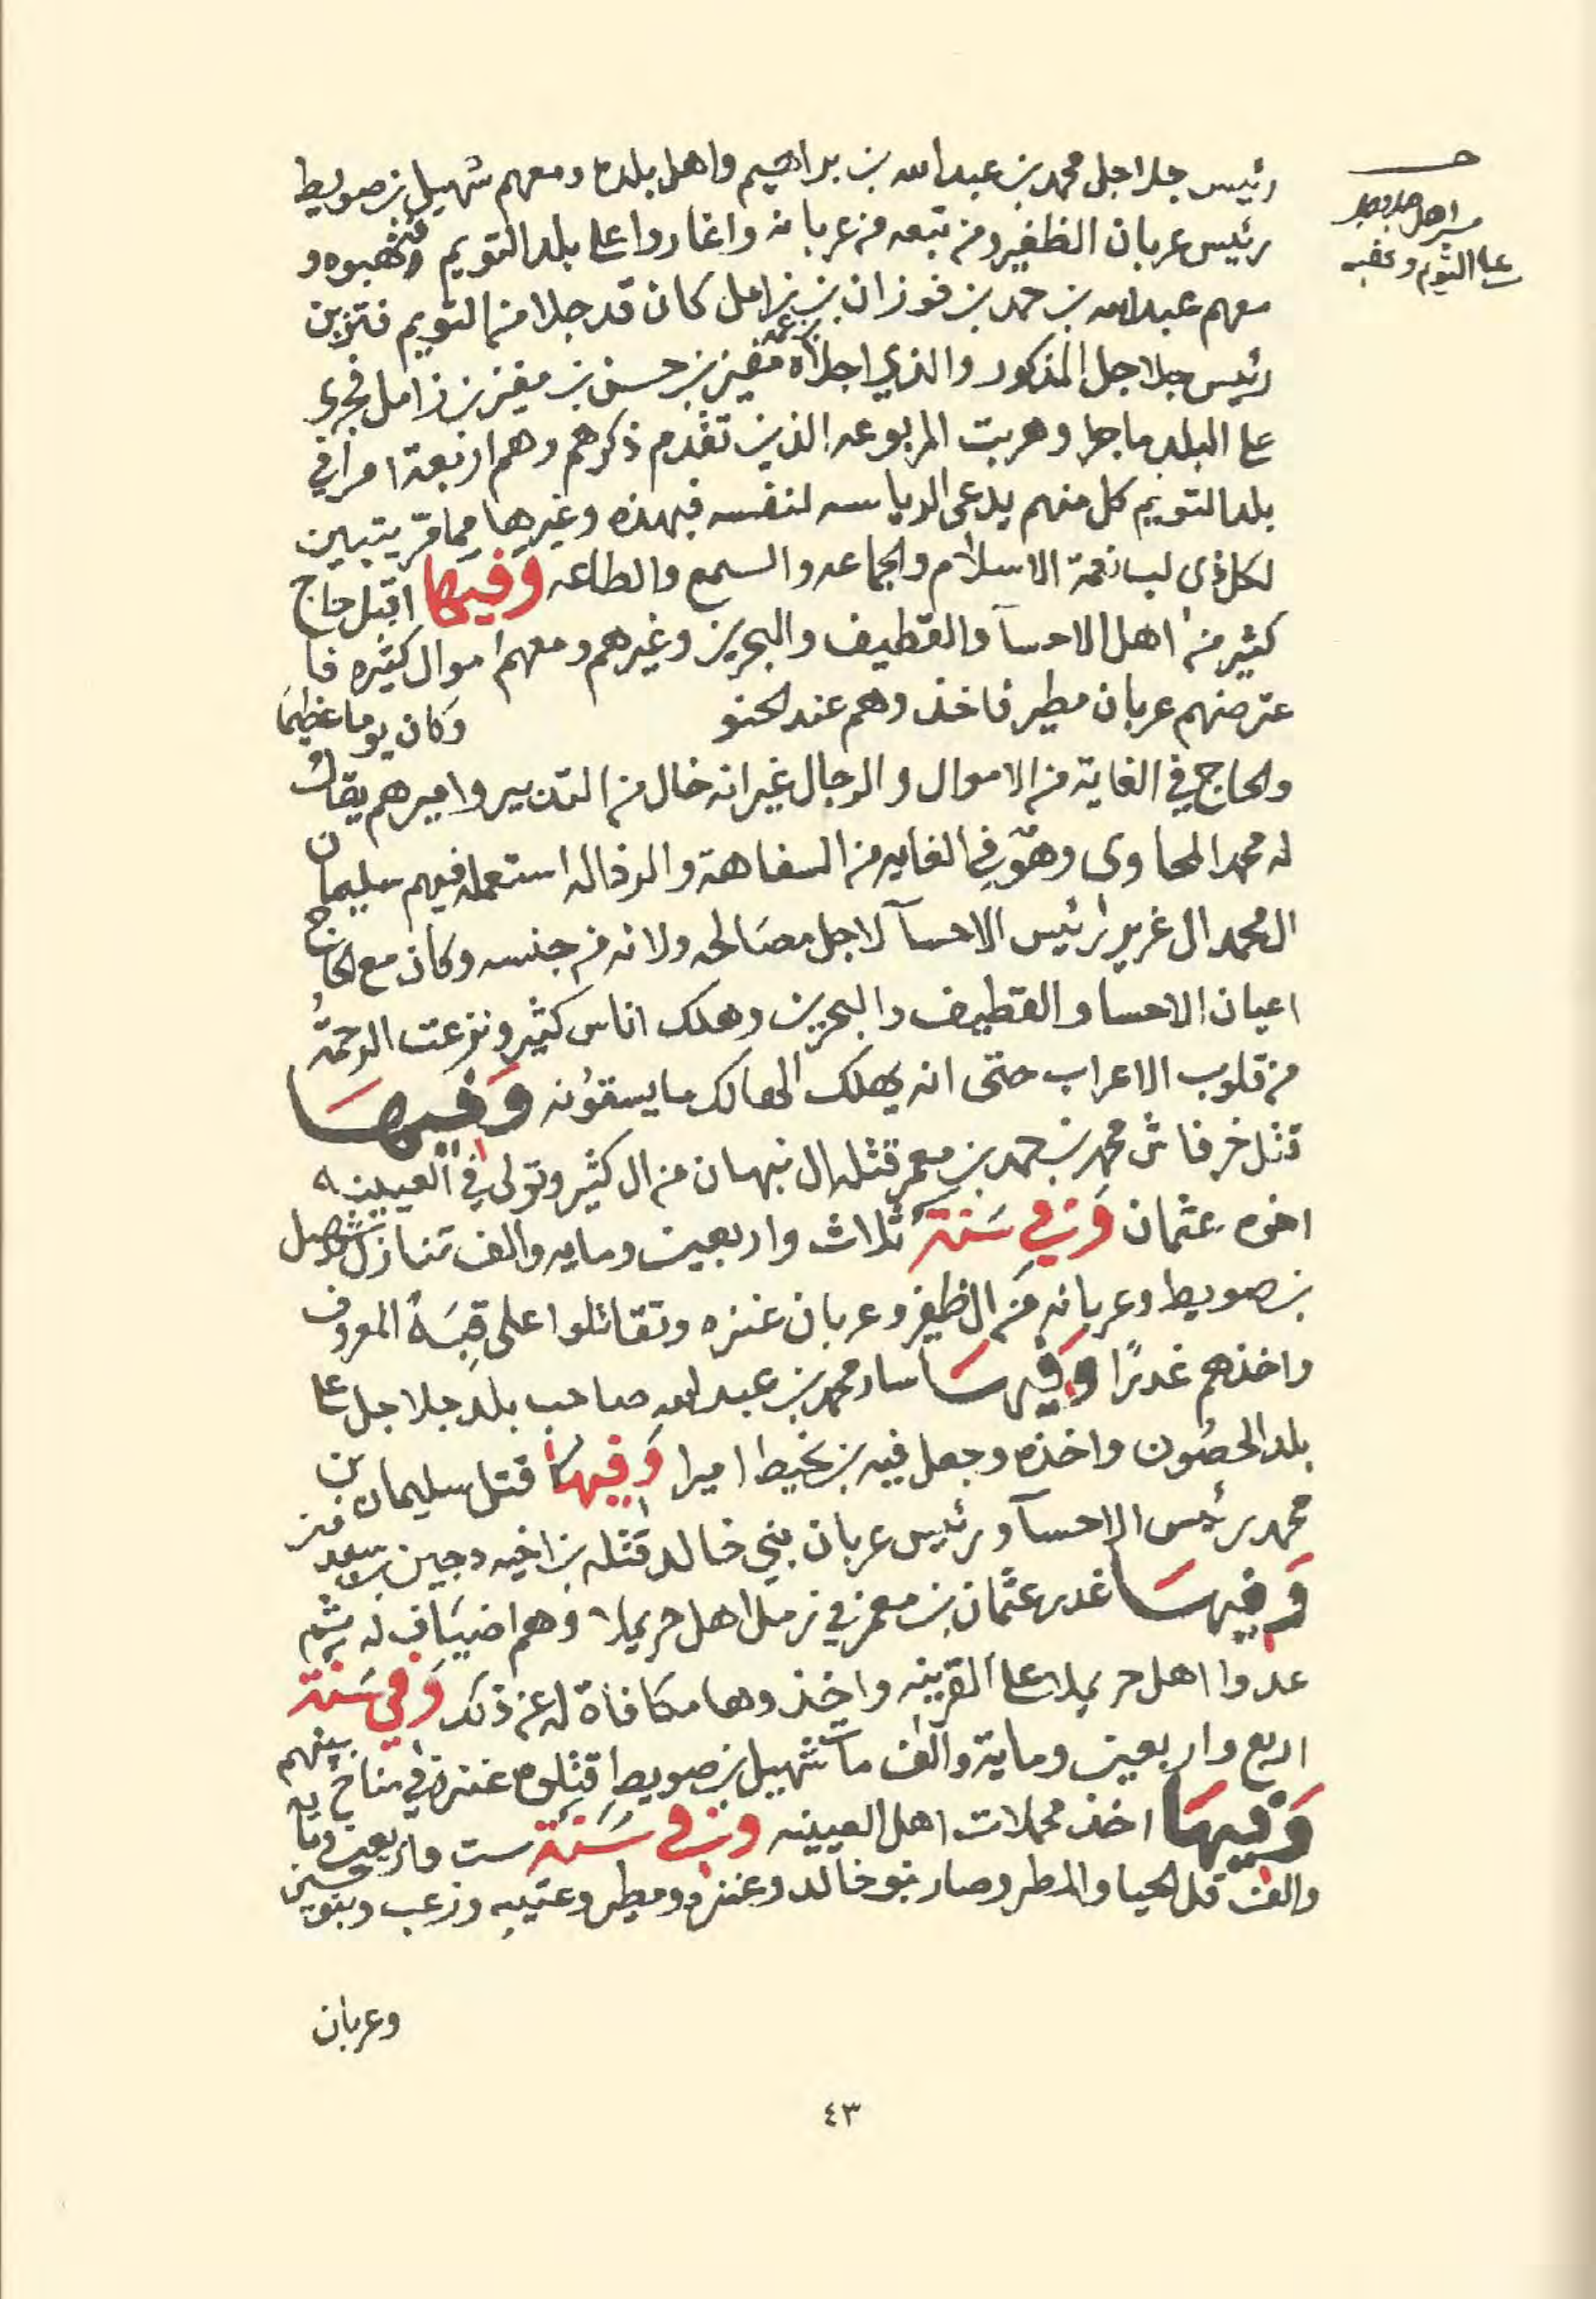 رئيس جلاجل محمد بن عبدالله بن براهيم واهل بلده ومعهم شهيل بن صويط
رئيس عربان الظفير ومن تبعه من عربانه واغاروا على بلد التويم ونهبوه و
معهم عبدالله بن حمد بن فوزان بن زامل كان قد جلا من التويم فتزبن
رئيس جلاجل المذكور والذي اجلاه بن عمه مفيز بن حسن بن مفيز بن زامل فجرى
على البلد ما جرا وهربت المربوعه الذين تقدم ذكرهم وهم اربعة امرا في
بلد التويم كل منهم يدعى الرياسه لنفسه فبهذه وغيرها مما مر يتبين
لكل ذى لب نعمة الاسلام والجماعه والسمع والطاعه وفيها اقبل حاج
كثير من اهل الاحسآ والقطيف والبحرين وغيرهم ومعهم اموال كثيره فا
عترضهم عربان مطير فاخذوهم عند الحنو وكان يوما عظيما
والحاج في الغاية من الاموال والرجال غير انه خال من التدبير واميرهم يقال
له محمد المحاوى وهو في الغايه من السفاهة والرذاله استعمله فيهم سليمان
ال محمد ال غرير رئيس الاحسآ لاجل مصالحه ولانه من جنسه وكان مع الحاج
اعيان الاحسا والقطيف والبحرين وهلك اناس كثير ونزعت الرحمة
من قلوب الاعراب حتى انه يهلك الهالك ما يسقونه وفيها
قتل خرفاش محمد بن حمد بن معمر قتله ال نبهان من ال كثير وتولى في العيينه
اخوه عثمان وفي سنة ثلاث واربعين ومايه والف تنازل شهيل
بن صويط وعربانه من ال ظفير وعربان عنزه وتقاتلوا على قبة المعروف
واخذهم غدرًا وفيها سار محمد بن عبدالله صاحب بلد جلاجل على
بلد الحصون واخذه وجعل فيه بن نحيط اميرا وفيها قتل سليمان بن
محمد رئيس الاحسآ ورئيس عربان بني خالد قتله بن اخيه دجين بن سعدون
وفيها غدر عثمان بن معمر في زمل اهل حريملا وهم اضياف له ثم
عدوا اهل حريملا على القرينه واخذوها مكافاة له عن ذلك وفي سنة
اربع واربعين وماية والف مات شهيل بن صويط قتلوه عنزة في مناخ بينهم
وفيها اخذ محملات اهل العيينه وفي سنة ست واربعين وماية
والف قل الحيا والمطر وصار بنو خالد وعنزه ومطير وعتيبه وزعب وبنو حسين
وعربان
مسير اهل جلاجل
على التويم ونهبه
٤٣